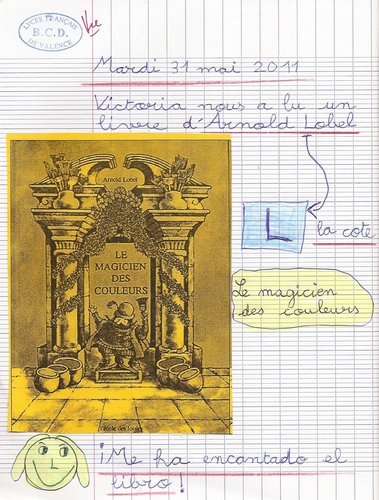 LYCEE FRANÇAIS
B.C.D.
DE VALENCE
Vu
Mardi 31 mai 2011
Victoria nous a lu un
livre d'Arnold Lobel
Arnold Lobel
LE
MAGICIEN
DES
COULEURS
l'école des loisirs
L
la cote
Le magicien
des couleurs
¡Me ha encantado el
libro!